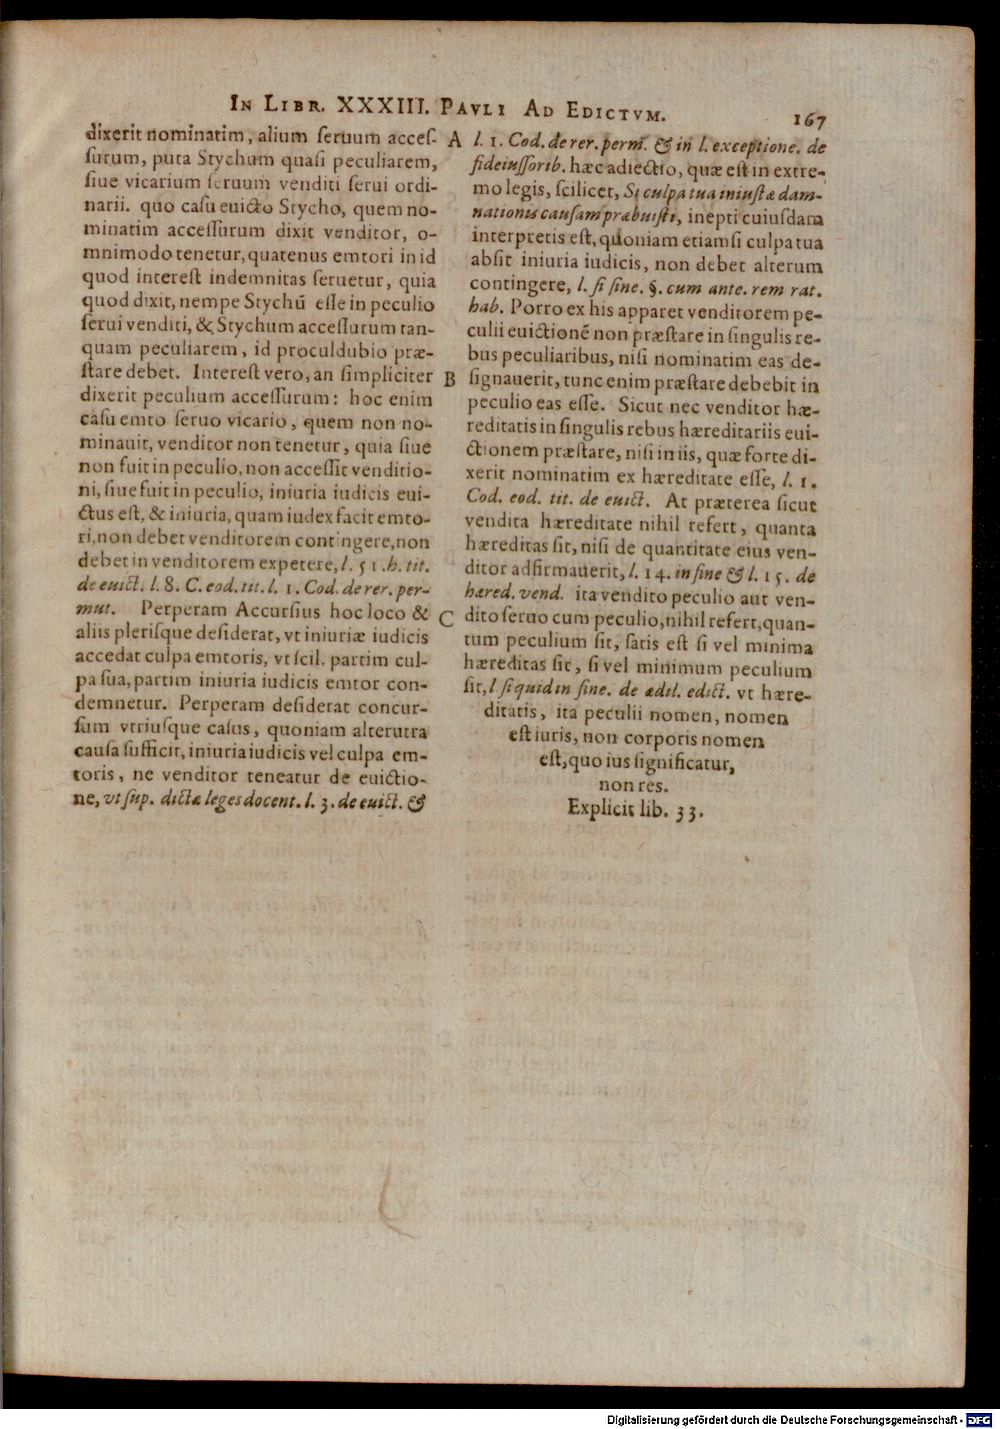 In Libr. XXXIII. Pavli Ad Edictvm.
167
dixerit nominatim, alium seruum acces-
surum, puta Stychum quasi peculiarem,
siue vicarium seruum venditi serui ordi-
narii. quo casu euicto Stycho, quem no-
minatim accessurum dixit venditor, o-
mnimodo tenetur, quatenus emtori in id
quod interest indemnitas seruetur, quia
quod dixit, nempe Stychū esse in peculio
serui venditi, & Stychum accessurum tan-
quam peculiarem, id proculdubio præ-
stare debet. Interest vero, an simpliciter
dixerit peculium accessurum: hoc enim
casu emto seruo vicario, quem non no-
minauit, venditor non tenetur, quia siue
non fuit in peculio, non accessit venditio-
ni, siue fuit in peculio, iniuria iudicis eui-
ctus est, & iniuria, quam iudex facit emto-
ri, non debet venditorem contingere, non
debet in venditorem expetere, l. 51. h. tit.
de euict. l. 8. C. eod. tit. l. 1. Cod. de rer. per-
mut. Perperam Accursius hoc loco &
aliis plerisque desiderat, vt iniuriæ iudicis
accedat culpa emtoris, vt scil. partim cul-
pa sua, partim iniuria iudicis emtor con-
demnetur. Perperam desiderat concur-
sum vtriusque casus, quoniam alterutra
causa sufficit, iniuria iudicis vel culpa em-
toris, ne venditor teneatur de euictio-
ne, vt sup. dictæ leges docent. l. 3. de euict. &
A
B
C
l. 1. Cod. de rer. perm. & in l. exceptione. de
fideiussorib. hæc adiectio, quæ est in extre-
mo legis, scilicet, Si culpa tua iniustæ dam-
nationis causam præbuisti, inepti cuiusdam
interpretis est, quoniam etiamsi culpa tua
absit iniuria iudicis, non debet alterum
contingere, l. si sine. §. cum ante. rem rat.
hab. Porro ex his apparet venditorem pe-
culii euictionē non præstare in singulis re-
bus peculiaribus, nisi nominatim eas de-
signauerit, tunc enim præstare debebit in
peculio eas esse. Sicut nec venditor hæ-
reditatis in singulis rebus hæreditariis eui-
ctionem præstare, nisi in iis, quæ forte di-
xerit nominatim ex hæreditate esse, l. 1.
Cod. eod. tit. de euict. At præterea sicut
vendita hæreditate nihil refert, quanta
hæreditas sit, nisi de quantitate eius ven-
ditor adfirmauerit, l. 14. in fine & l. 15. de
hæred. vend. ita vendito peculio aut ven-
dito seruo cum peculio, nihil refert, quan-
tum peculium sit, satis est si vel minima
hæreditas sit, si vel minimum peculium
sit, l si quid in fine. de ædil. edict. vt hære-
ditatis, ita peculii nomen, nomen
est iuris, non corporis nomen
est, quo ius significatur,
non res.
Explicit lib. 33.
Digitalisierung gefördert durch die Deutsche Forschungsgemeinschaft - DFG